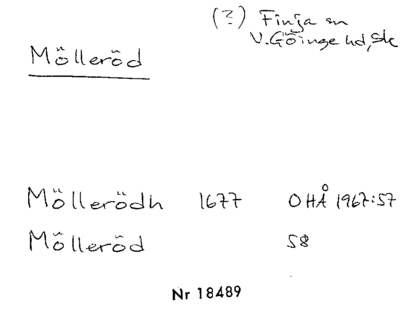 (?) Finja sn
V. Göinge hd, Sk
Mölleröd
Möllerödh 1677 OHÅ 1967:57
Mölleröd 58
Nr 18489